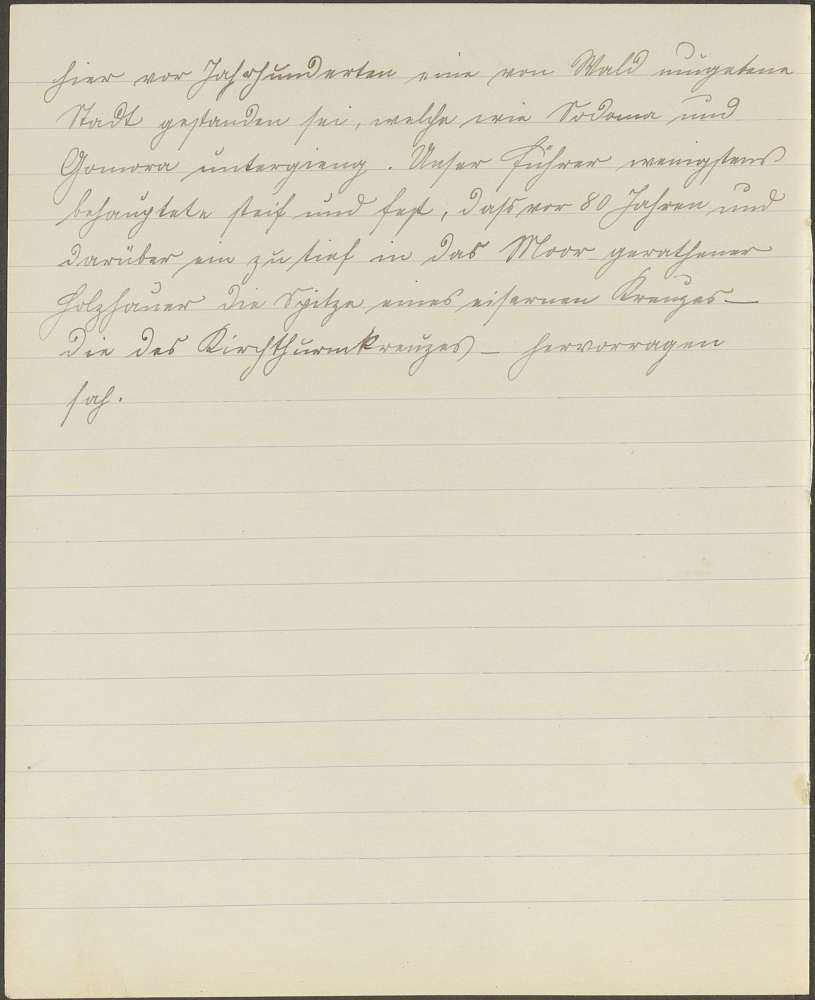 hier vor Jahrhunderten eine von Wald umgebene
Stadt gestanden sei, welche wie Sodoma und
Gomora untergieng. Unser Führer wenigstens
behauptete steif und fest, dass vor 80 Jahren und
darüber ein zu tief in das Moor gerathener
Holzhauer die Spitze eines eisernen Kreuzes –
die des Kirchthurmkreuzes – hervorragen
sah.